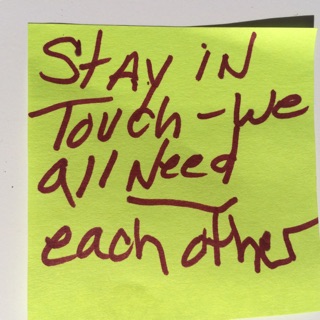 Stay in
Touch - We
all Need
each other